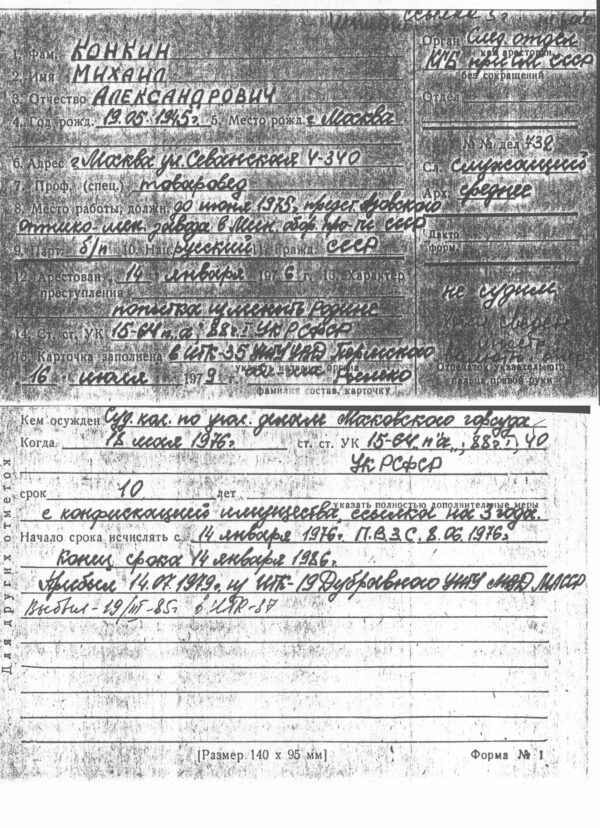 ссылка 3 г
1. Фам. КОНКИН
2. Имя МИХАИЛ
3. Отчество АЛЕКСАНДРОВИЧ
4. Год рожд. 19.05.1945г. 5. Место рожд. г. Москва
6. Адрес г. Москва ул. Севанская 4-340
7. Проф. (спец.) товаровед
8. Место работы, должн. до июня 1975, предст. Азовского
оптико-мех. завода в Мин. обор. пр-ти СССР
9. Парт. б/п 10. Нац. русский 11. Гражд. СССР
12. Арестован 14 января 1976 г. 13. Характер
преступления
попытка изменить Родине
14. Ст. ст. УК 15-64 п. „а“ 88 ч. I УК РСФСР
15. Карточка заполнена в ИТК-35 УИТУ УВД Пермского
указать назв. органа
16 июля 1979 г.
фамилия состав. карточку
Орган След. отдел
кем арестован
КГБ при СМ СССР
без сокращений
Отдел
№ № дел 738
Сл. служащий
Арх. среднее
Дакто
форм.
не судим
Отпечаток указательного
пальца правой руки
Кем осужден Суд. кол. по угол. делам Московского горсуда
Когда 18 мая 1976г. ст. ст. УК 15-64 п „а“, 88 ч. I, 40
УК РСФСР
срок 10 лет
указать полностью дополнительные меры
с конфискацией имущества, ссылка на 3 года.
Начало срока исчислять с 14 января 1976г. П.В.З.С. 8.06.1976г.
Конец срока 14 января 1986г.
Прибыл 14.07.1979г. из ИТК-19 Дубравного УИТУ МВД МАССР
Выбыл - 19/III-85г. в ИТК-37
Для других отметок
[Размер 140 х 95 мм]
Форма № 1